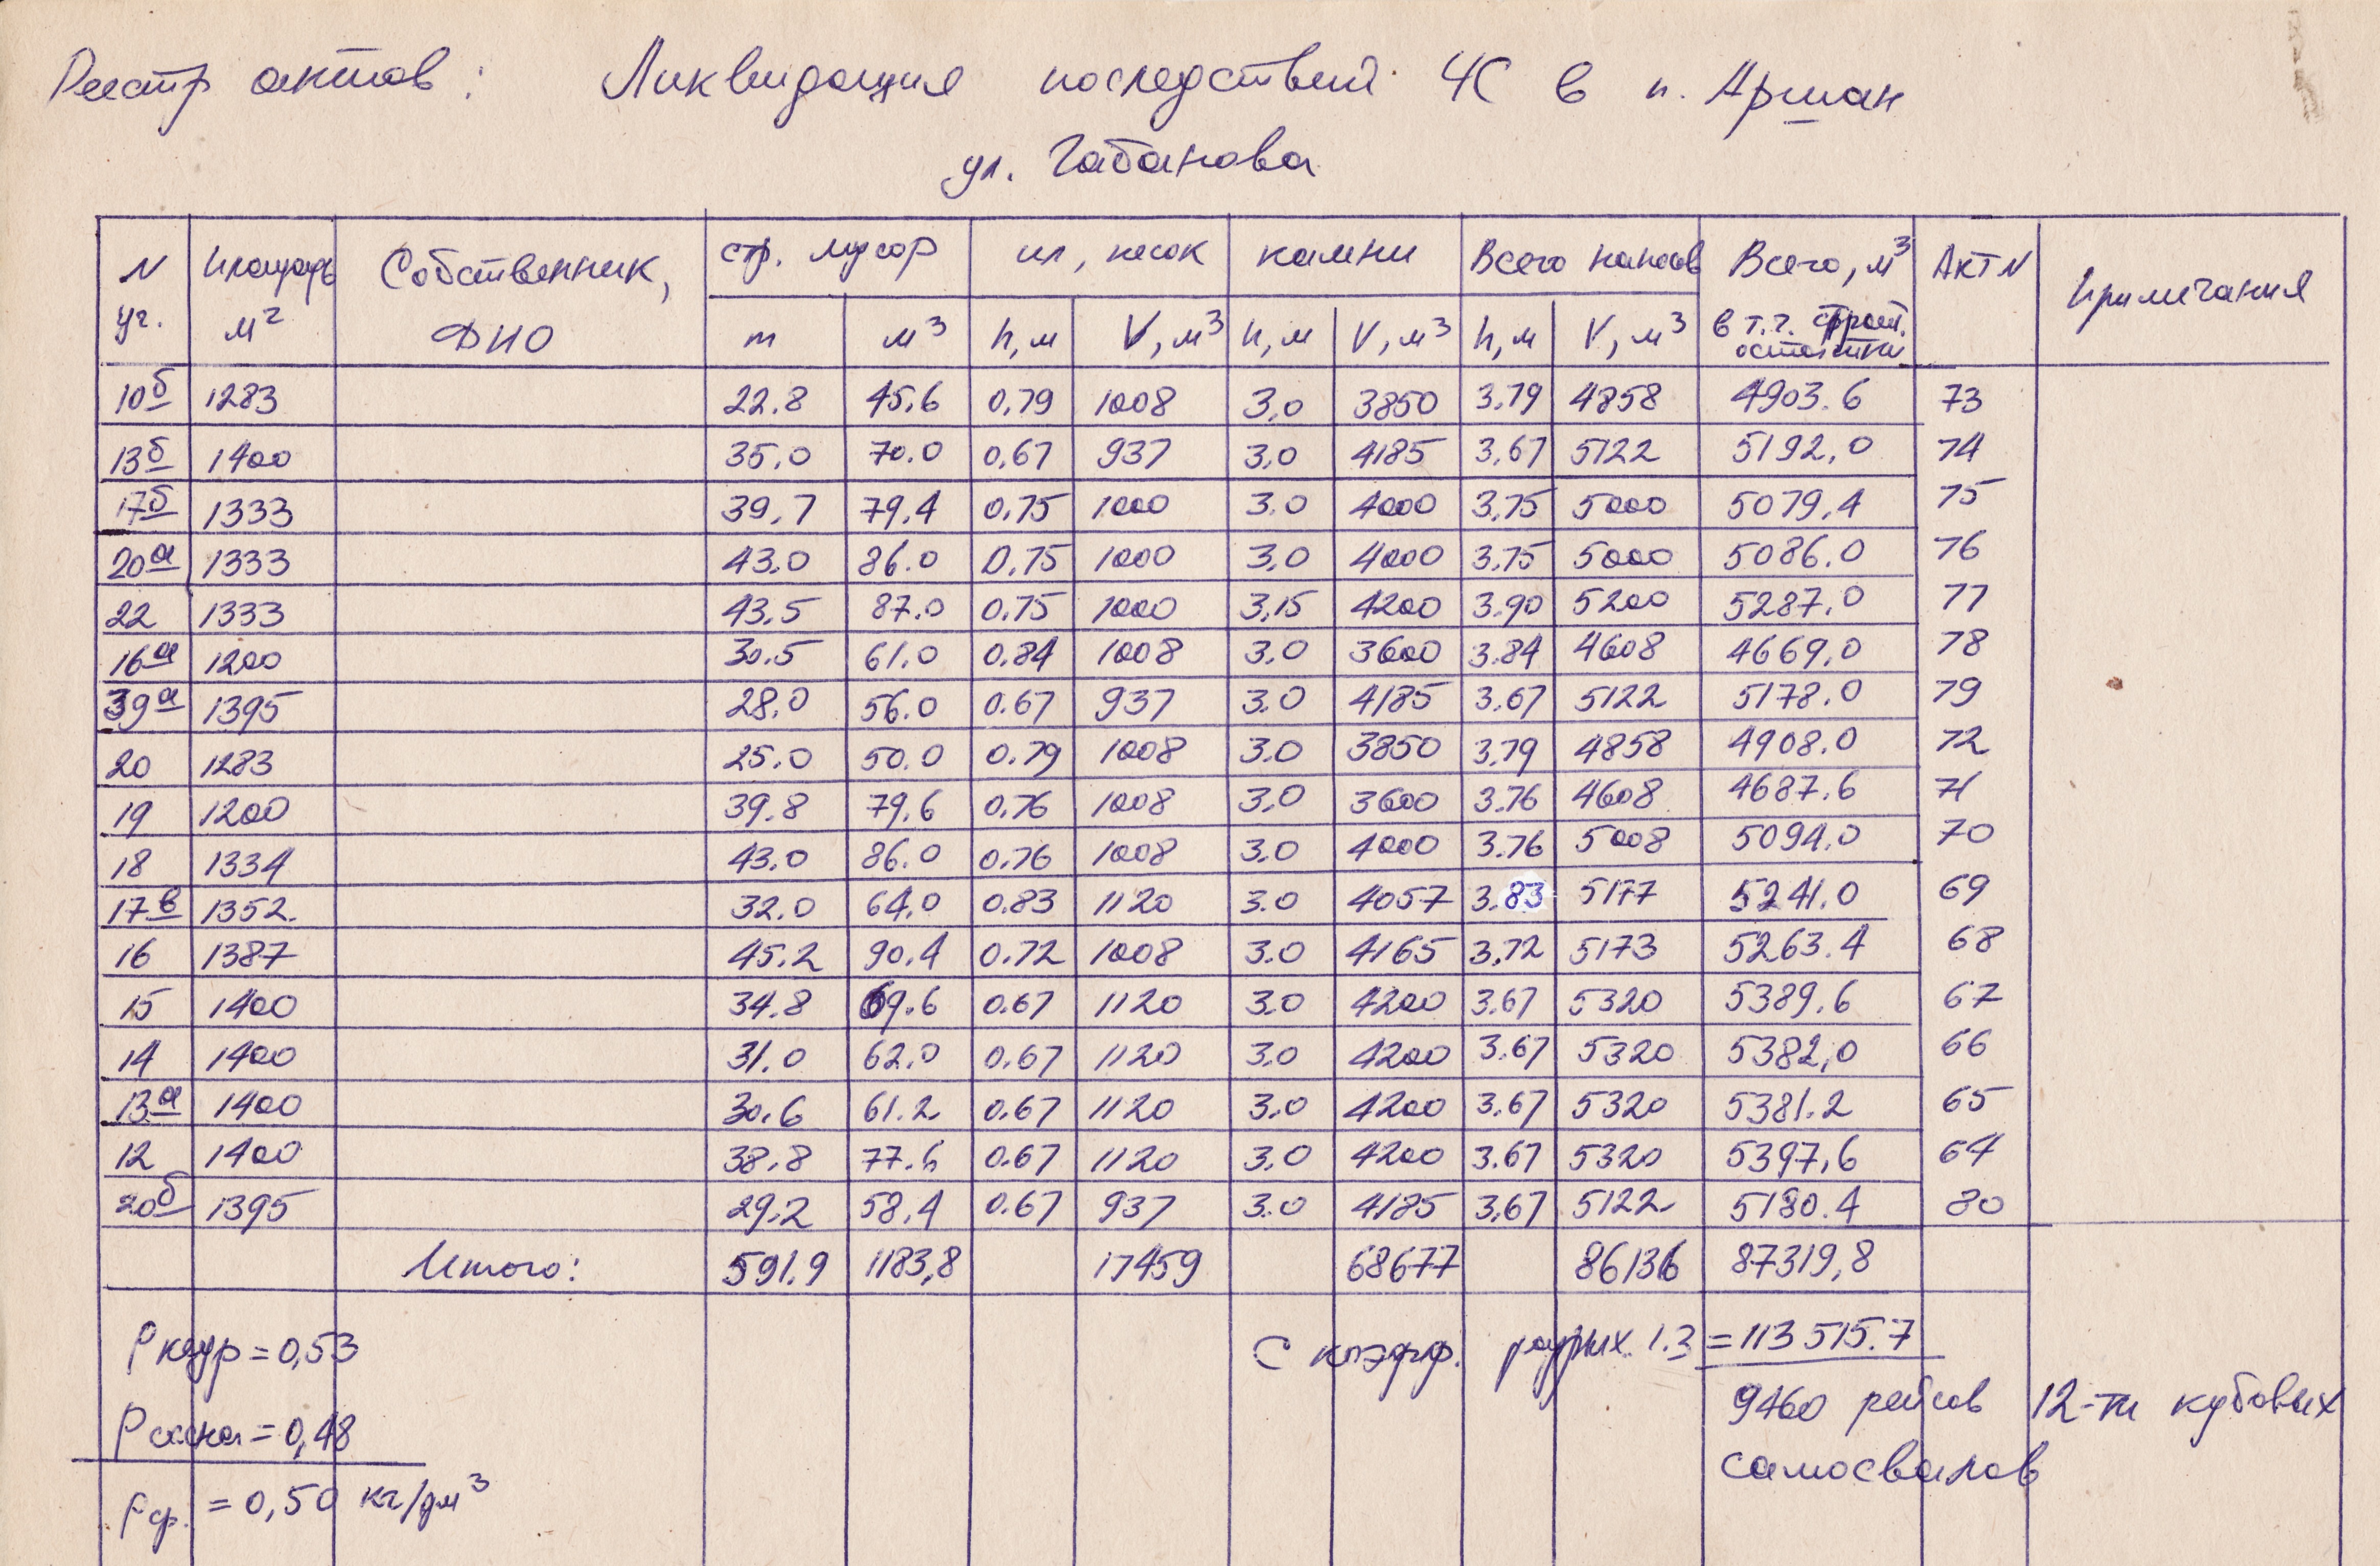 Реестр актов: Ликвидация последствий ЧС в п. Аршан
ул. Габанова
N уч. Площадь м² Собственник, ФИО стр. мусор ил, песок камни Всего наносов Всего, м³ в т.ч. строит. остатки Акт N Примечания
т м³ h,м V,м³ h,м V,м³ h,м V,м³
10б 1283 22.8 45,6 0,79 1008 3,0 3850 3.79 4858 4903.6 73
13б 1400 35.0 70.0 0,67 937 3,0 4185 3,67 5122 5192,0 74
17б 1333 39,7 79,4 0,75 1000 3.0 4000 3,75 5000 5079,4 75
20а 1333 43,0 86.0 0,75 1000 3,0 4000 3,75 5000 5086.0 76
22 1333 43,5 87.0 0,75 1000 3,15 4200 3.90 5200 5287,0 77
16а 1200 30.5 61.0 0.84 1008 3.0 3600 3.84 4608 4669,0 78
39а 1395 28,0 56.0 0.67 937 3.0 4185 3,67 5122 5178.0 79
20 1283 25.0 50.0 0.79 1008 3.0 3850 3,79 4858 4908.0 72
19 1200 39.8 79,6 0,76 1008 3,0 3600 3.76 4608 4687.6 71
18 1334 43.0 86.0 0.76 1008 3.0 4000 3.76 5008 5094.0 70
17в 1352. 32.0 64,0 0.83 1120 3.0 4057 3.83 5177 5241.0 69
16 1387 45.2 90.4 0.72 1008 3.0 4165 3,72 5173 5263.4 68
15 1400 34.8 69.6 0.67 1120 3.0 4200 3.67 5320 5389.6 67
14 1400 31.0 62.0 0.67 1120 3.0 4200 3.67 5320 5382,0 66
13а 1400 30.6 61.2 0.67 1120 3.0 4200 3.67 5320 5381.2 65
12 1400 38,8 77.6 0.67 1120 3.0 4200 3.67 5320 5397,6 64
20б 1395 29,2 58,4 0.67 937 3.0 4185 3,67 5122 5180.4 80
Итого: 591.9 1183,8 17459 68677 86136 87319,8
ρ кедр = 0,53 С коэфф. разрых. 1.3 = 113 515.7
9460 рейсов 12-ти кубовых
ρ сосна = 0,48 самосвалов
ρ ср. = 0,50 кг/дм³